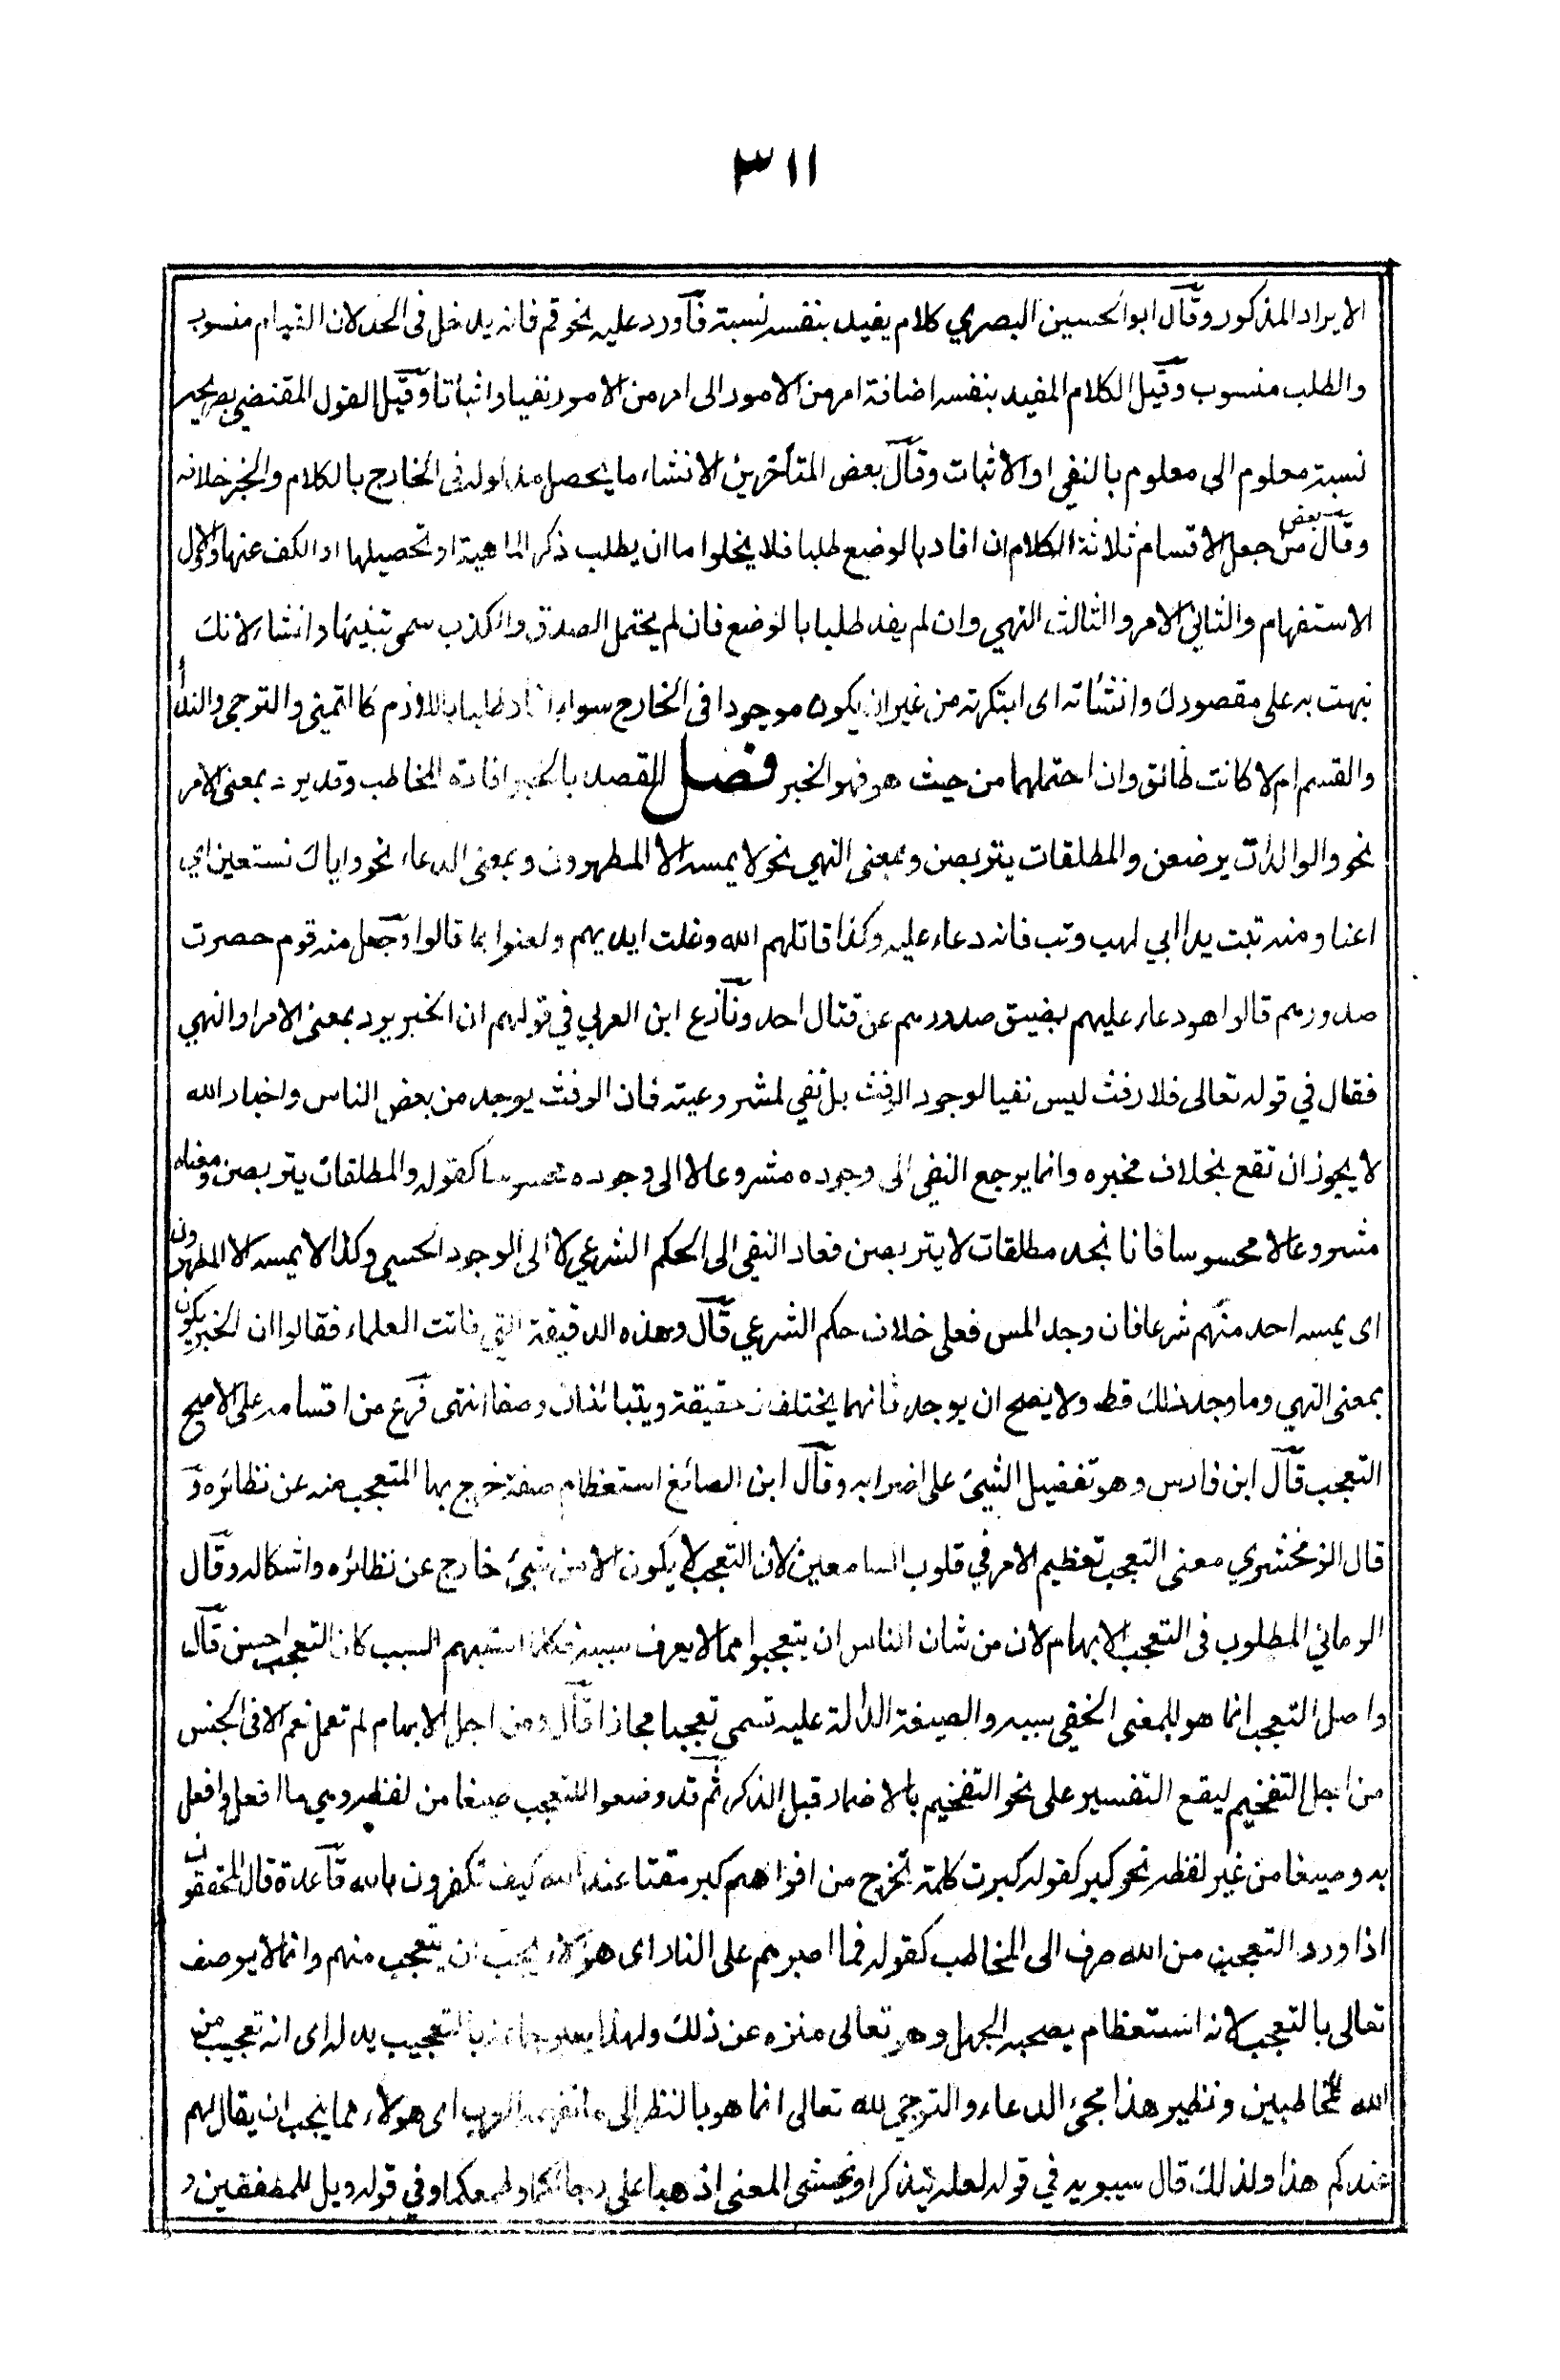 ٣١١
الايراد المذكور وقال ابو الحسين البصري كلام يفيد بنفسه نسبة فاورد عليه نحو قم فانه يدخل فى الحد لان القيام منسوب
والطلب منسوب وقيل الكلام المفيد بنفسه اضافة امر من الامور الى امر من الامور نفيا واثباتا وقيل القول المقتضي بصريحه
نسبة معلوم الى معلوم بالنفى او الاثبات وقال بعض المتأخرين الانشاء ما يحصل مدلوله فى الخارج بالكلام والخبر خلافه
وقال بعض من جعل الاقسام ثلاثة الكلام ان افاد بالوضع طلبا فلا يخلوا ما ان يطلب ذكر الماهية او تحصيلها او الكف عنها والاول
الاستفهام والثاني الامر والثالث النهي وان لم يفد طلبا بالوضع فان لم يحتمل الصدق والكذب سمى تنبيها وانشاء لانك
نبهت به على مقصودك وانشأته اى ابتكرته من غير ان يكون موجودا فى الخارج سواء افاد طلبا باللازم كالتمنى والترجى والندأ
والقسم ام لا كانت طالق وان احتملهما من حيث هو فهو الخبر فصل القصد بالخبر افادة المخاطب وقد يرد بمعنى الامر
نحو والوالدات يرضعن والمطلقات يتربصن وبمعنى النهي نحو لا يمسه الا المطهرون وبمعنى الدعاء نحو واياك نستعين اي
اعنا ومنه تبت يدا ابي لهب وتب فانه دعاء عليه وكذا قاتلهم الله وغلت ايديهم ولعنوا بما قالوا وجعل منه قوم حصرت
صدورهم قالوا هو دعاء عليهم بضيق صدورهم عن قتال احد ونازع ابن العربي في قولهم ان الخبر يرد بمعنى الامر او النهي
فقال في قوله تعالى فلا رفث ليس نفيا لوجود الرفث بل نفي لمشروعيته فان الرفث يوجد من بعض الناس واخبار الله
لا يجوز ان تقع بخلاف مخبره وانما يرجع النفى الى وجوده مشروعا لا الى وجوده محسوسا كقوله والمطلقات يتربصن ومعناه
مشروعا لا محسوسا فانا نجد مطلقات لا يتربصن فعاد النفى الى الحكم الشرعي لا الى الوجود الحسي وكذا لا يمسه الا المطهرون
اى يمسه احد منهم شرعا فان وجد المس فعلى خلاف حكم الشرعي قال وهذه الدقيقة التى فاتت العلماء فقالوا ان الخبر يكون
بمعنى النهي وما وجد ذلك قط ولا يصح ان يوجد فانهما يختلفان حقيقة ويتبائنان وصفا انتهى فرع من اقسامه على الاصح
التعجب قال ابن فارس وهو تفضيل الشيئ على اضرابه وقال ابن الصائغ استعظام صفة خرج بها المتعجب منه عن نظائره و
قال الزمخشري معنى التعجب تعظيم الامر في قلوب السامعين لان التعجب لا يكون الا من شيئ خارج عن نظائره واشكاله وقال
الرماني المطلوب فى التعجب الابهام لان من شان الناس ان يتعجبوا مما لا يعرف سببه فكلما استبهم السبب كان التعجب احسن قال
واصل التعجب انما هو للمعنى الخفي سببه والصيغة الدالة عليه تسمى تعجبا مجازا قال ومن اجل الابهام لم تعمل نعم الا فى الجنس
من اجل التفخيم ليقع التفسير على نحو التفخيم بالاضمار قبل الذكر ثم قد وضعوا للتعجب صيغا من لفظه وهي ما افعل وافعل
به وصيغا من غير لفظه نحو كبر كقوله كبرت كلمة تخرج من افواههم كبر مقتا عند الله كيف تكفرون بالله قاعدة قال المحققون
اذا ورد التعجب من الله صرف الى المخاطب كقوله فما اصبرهم على النار اى هؤلاء يجب ان يتعجب منهم وانما لا يوصف
تعالى بالتعجب لانه استعظام يصحبه الجهل وهو تعالى منزه عن ذلك ولهذا يعبر جماعة بالتعجيب بدله اى انه تعجيب من
الله للمخاطبين ونظير هذا مجئ الدعاء والترجى لله تعالى انما هو بالنظر الى ما تفهمه العرب اى هولاء مما يجب ان يقال لهم
عندكم هذا ولذلك قال سيبويه في قوله لعله يتذكر او يخشى المعنى اذهبا على رجائكما وطمعكما وفي قوله ويل للمطففين و